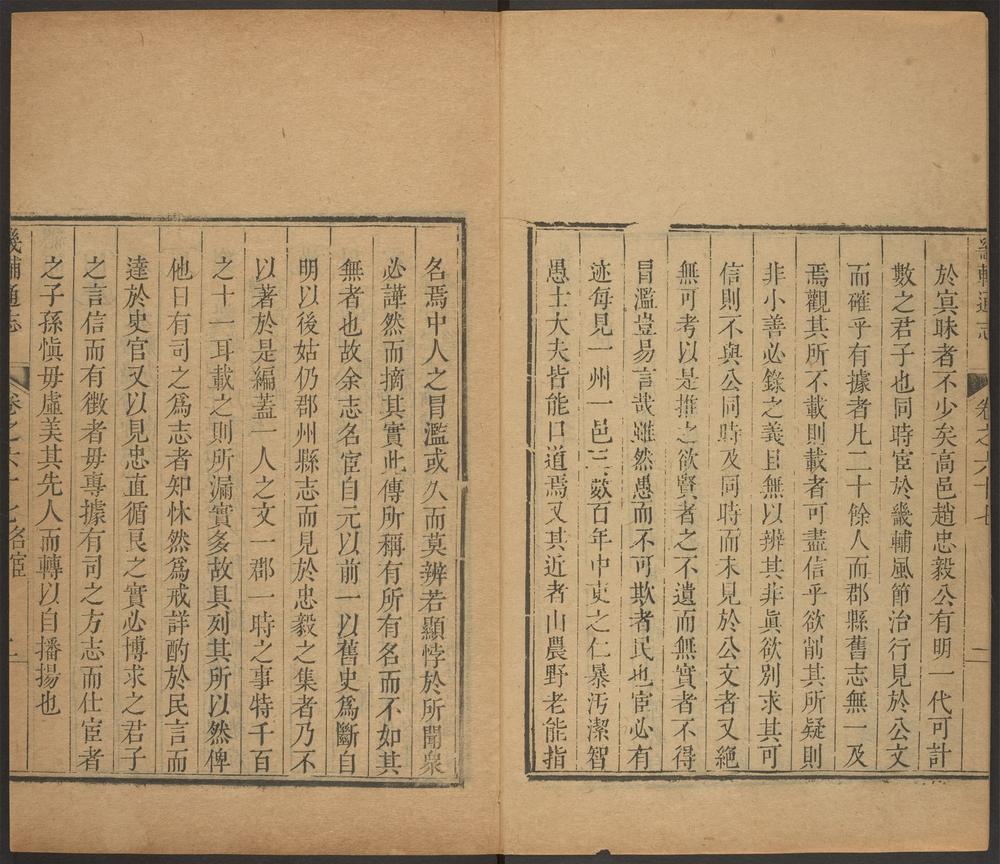 畿輔通志 卷之六十七 二
於冥昧者不少矣高邑趙忠毅公有明一代可計
數之君子也同時宦於畿輔風節治行見於公文
而確乎有據者凡二十餘人而郡縣舊志無一及
焉觀其所不載則載者可盡信乎欲削其所疑則
非小善必錄之義且無以辨其非眞欲別求其可
信則不與公同時及同時而未見於公文者又絕
無可考以是推之欲賢者之不遺而無實者不得
冒濫豈易言哉雖然愚而不可欺者民也宦必有
迹每見一州一邑三數百年中吏之仁暴汚潔智
愚士大夫皆能口道焉又其近者山農野老能指
名焉中人之冒濫或久而莫辨若顯悖於所聞衆
必譁然而摘其實此傳所稱有所有名而不如其
無者也故余志名宦自元以前一以舊史爲斷自
明以後姑仍郡州縣志而見於忠毅之集者乃不
以著於是編蓋一人之文一郡一時之事特千百
之十一耳載之則所漏實多故具列其所以然俾
他日有司之爲志者知怵然爲戒詳酌於民言而
達於史官又以見忠直循良之實必博求之君子
之言信而有徵者毋專據有司之方志而仕宦者
之子孫愼毋虛美其先人而轉以自播揚也
畿輔通志 卷之六十七 名宦 二